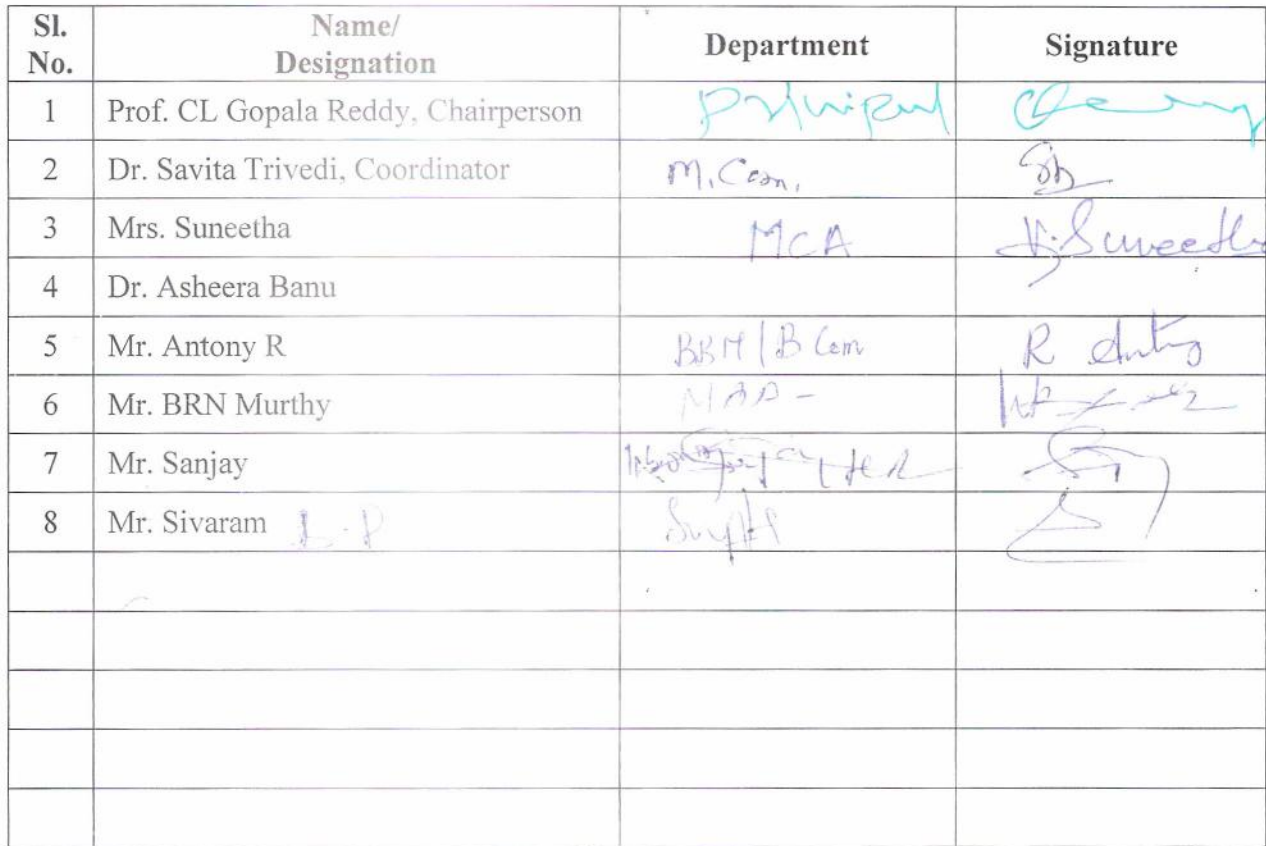 Sl. No. Name/ Designation Department Signature
1 Prof. CL Gopala Reddy, Chairperson Principal
2 Dr. Savita Trivedi, Coordinator M.Com.
3 Mrs. Suneetha MCA Suneetha
4 Dr. Asheera Banu
5 Mr. Antony R BBM/B Com R Antony
6 Mr. BRN Murthy
7 Mr. Sanjay
8 Mr. Sivaram